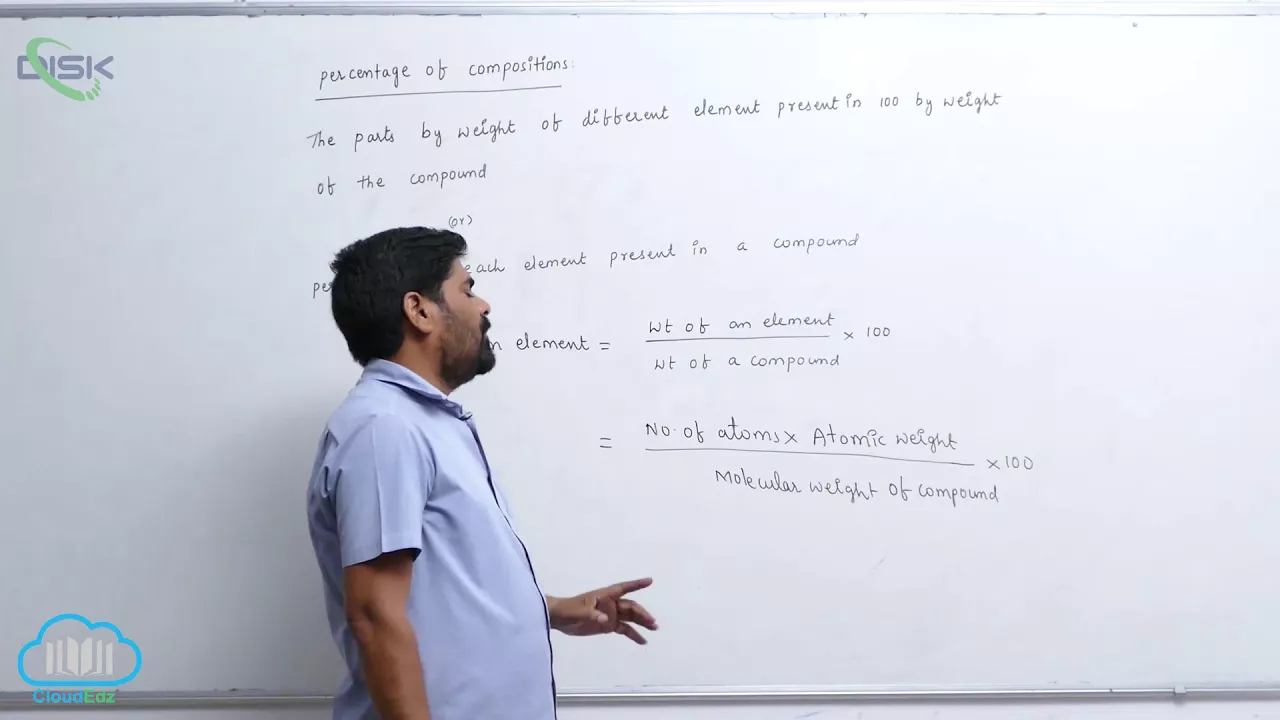 DISK
percentage of compositions:
The parts by weight of different element present in 100 by weight
of the compound
(or)
each element present in a compound
element = wt of an element × 100
wt of a compound
= No. of atoms × Atomic weight × 100
Molecular weight of compound
CloudEdz